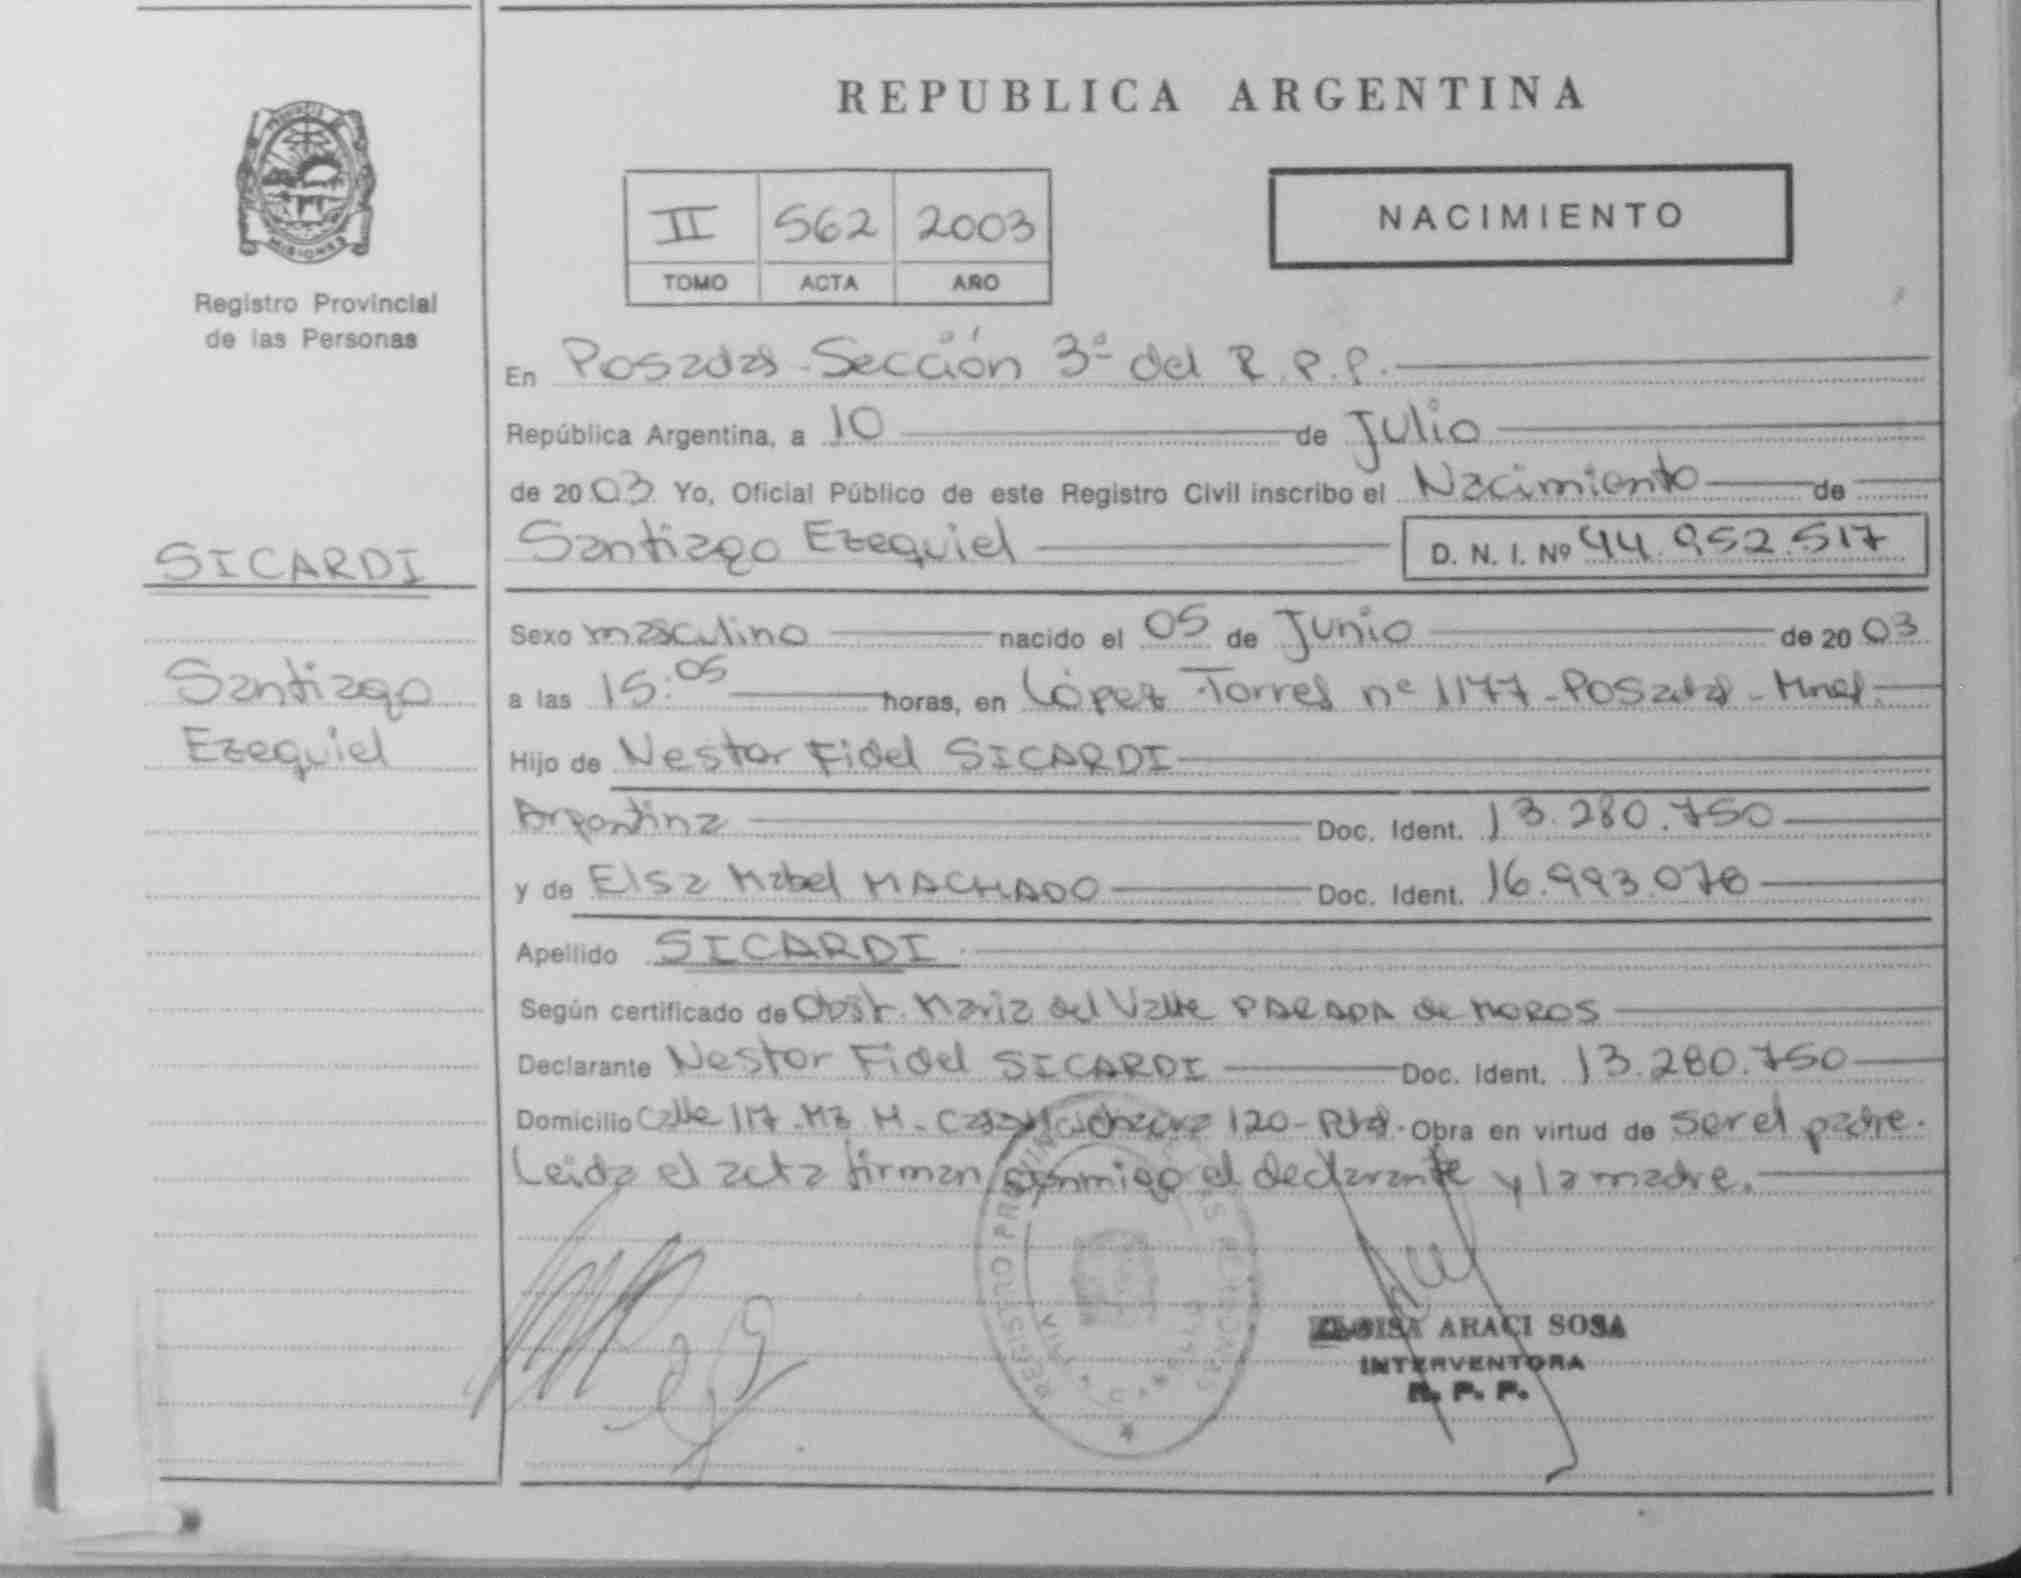 PROVINCIA DE
MISIONES
Registro Provincial
de las Personas
SICARDI
Santiago
Ezequiel
REPUBLICA ARGENTINA
II 562 2003
TOMO ACTA AÑO
NACIMIENTO
En Posadas - Sección 3ª del R.P.P.
República Argentina, a 10 de Julio
de 2003 Yo, Oficial Público de este Registro Civil inscribo el Nacimiento de
Santiago Ezequiel D. N. I. Nº 44.952.517
Sexo masculino nacido el 05 de Junio de 2003
a las 15:05 horas, en López Torres nº 1177 - Posadas - Mnes.
Hijo de Nestor Fidel SICARDI
Argentina Doc. Ident. 13.280.750
y de Elsa Mabel MACHADO Doc. Ident. 16.993.078
Apellido SICARDI
Según certificado de Obst. Maria del Valle PARADA de MOROS
Declarante Nestor Fidel SICARDI Doc. Ident. 13.280.750
Domicilio Calle 117 - Mz. M - Casa 120 - Pdas. Obra en virtud de ser el padre.
Leida el acta firman conmigo el declarante y la madre.
REGISTRO PROVINCIAL DE LAS PERSONAS
VILLA CABELLO
ELOISA ARACI SOSA
INTERVENTORA
R. P. P.